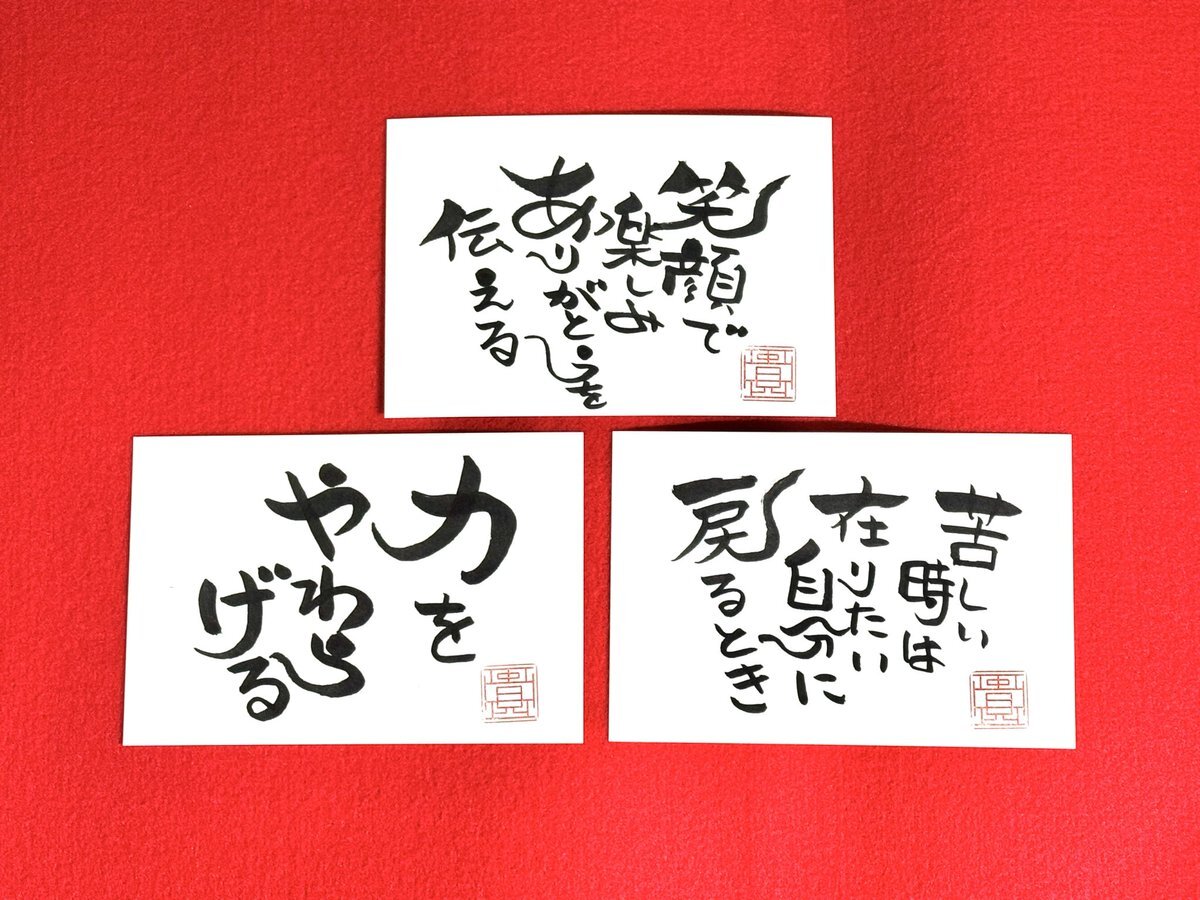 笑顔で
楽しみ
ありがとうを
伝える
力を
やわら
げる
苦しい
時は
在りたい
自分に
戻るとき